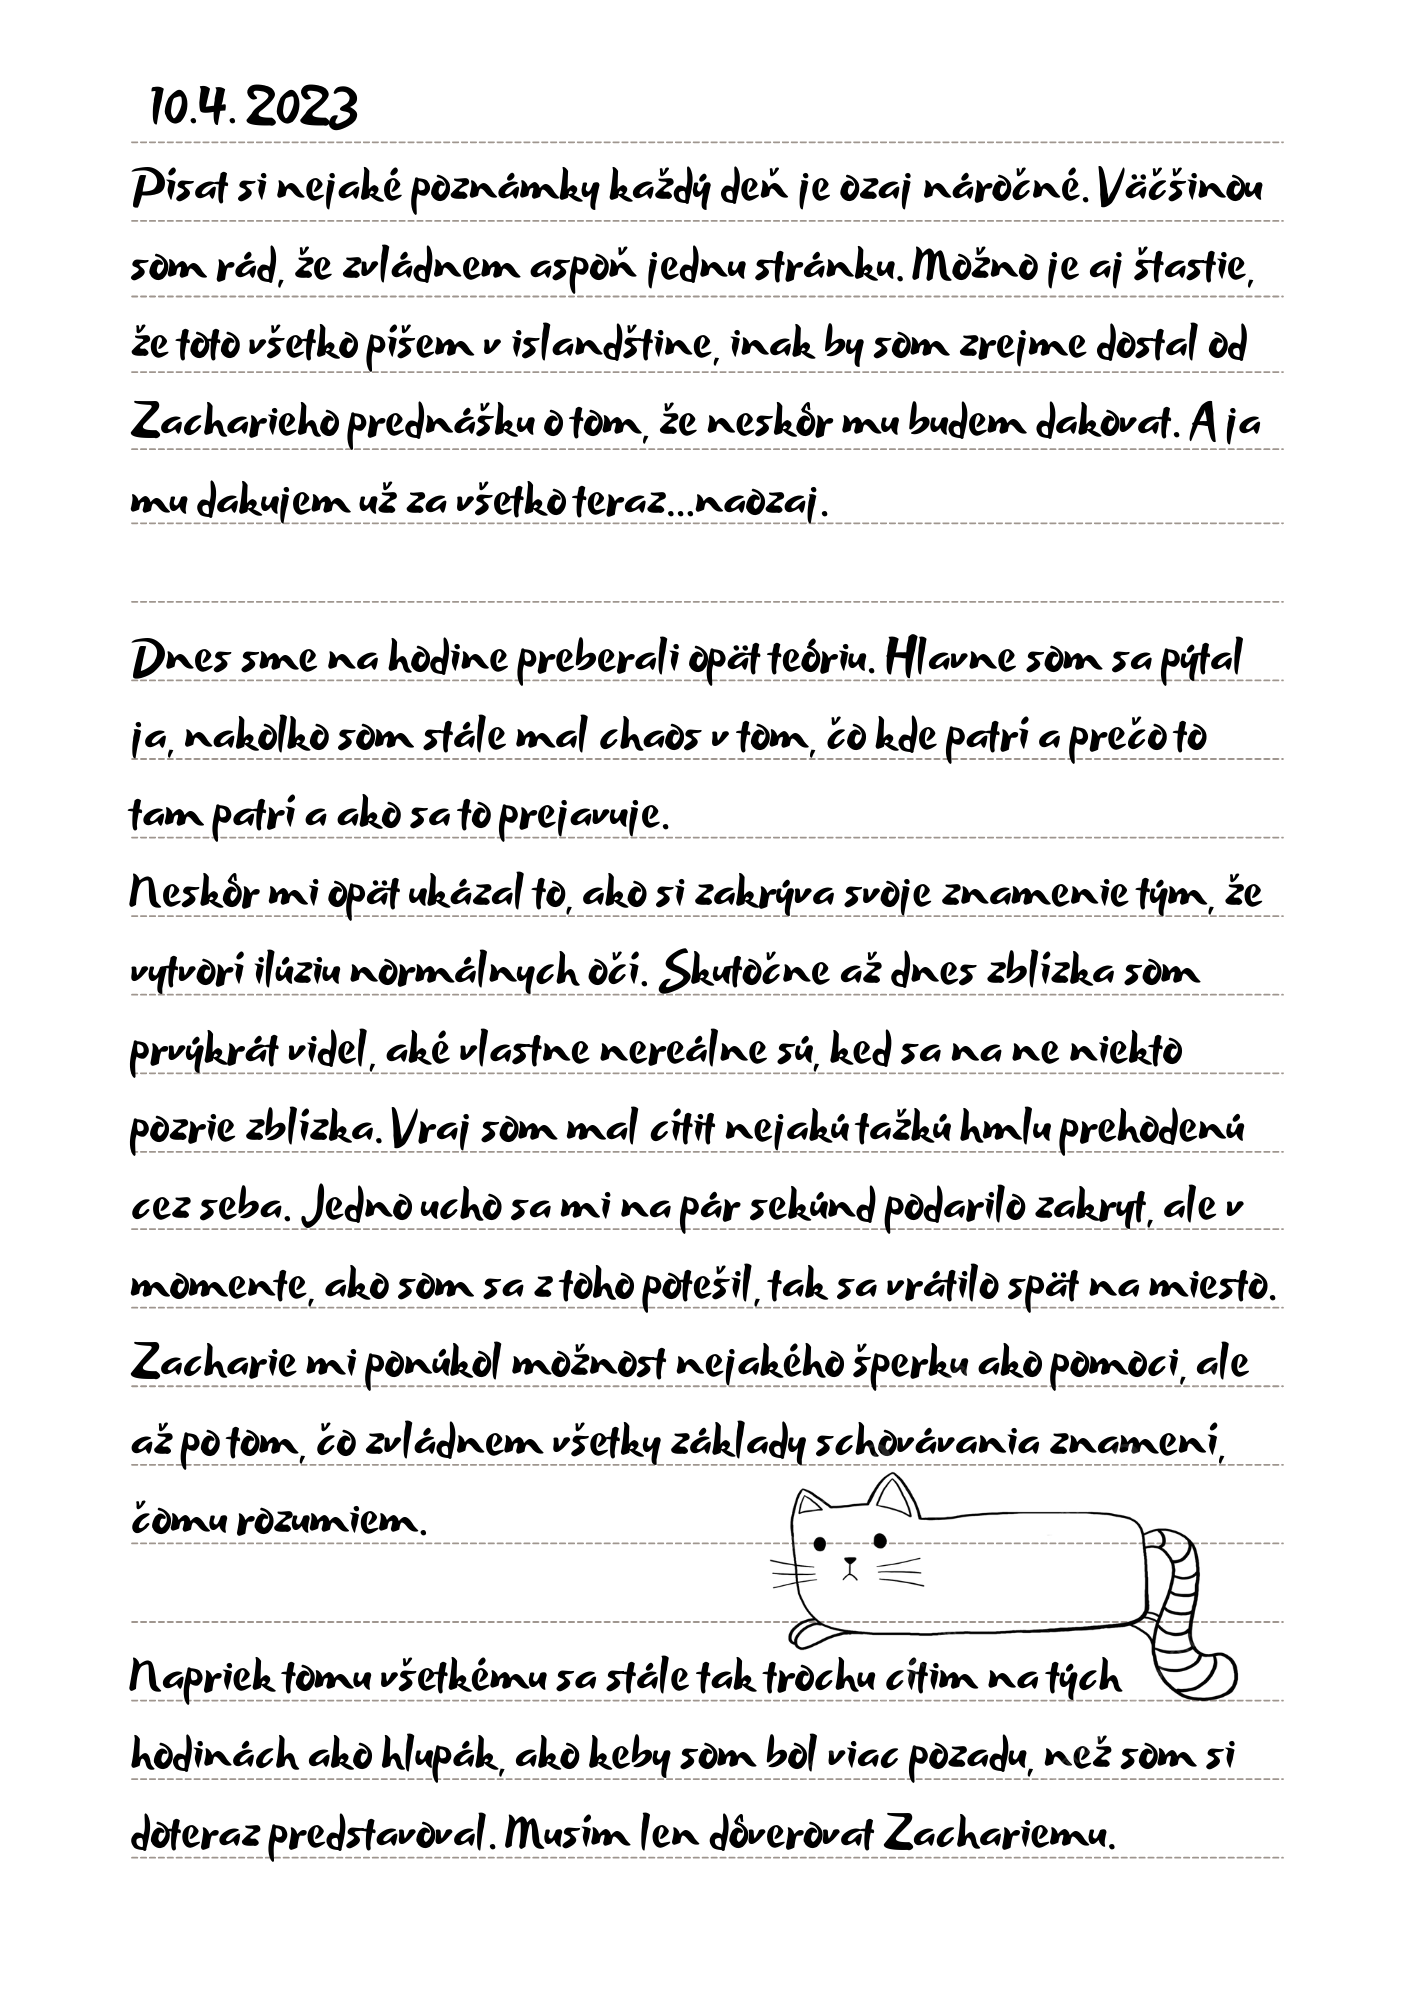 10.4. 2023
Písat si nejaké poznámky každý deň je ozaj náročné. Väčšinou
som rád, že zvládnem aspoň jednu stránku. Možno je aj štastie,
že toto všetko píšem v islandštine, inak by som zrejme dostal od
Zacharieho prednášku o tom, že neskôr mu budem dakovat. A ja
mu dakujem už za všetko teraz...naozaj.
Dnes sme na hodine preberali opät teóriu. Hlavne som sa pýtal
ja, nakolko som stále mal chaos v tom, čo kde patrí a prečo to
tam patrí a ako sa to prejavuje.
Neskôr mi opät ukázal to, ako si zakrýva svoje znamenie tým, že
vytvorí ilúziu normálnych očí. Skutočne až dnes zblízka som
prvýkrát videl, aké vlastne nereálne sú, ked sa na ne niekto
pozrie zblízka. Vraj som mal cítit nejakú tažkú hmlu prehodenú
cez seba. Jedno ucho sa mi na pár sekúnd podarilo zakryt, ale v
momente, ako som sa z toho potešil, tak sa vrátilo spät na miesto.
Zacharie mi ponúkol možnost nejakého šperku ako pomoci, ale
až po tom, čo zvládnem všetky základy schovávania znamení,
čomu rozumiem.
Napriek tomu všetkému sa stále tak trochu cítim na tých
hodinách ako hlupák, ako keby som bol viac pozadu, než som si
doteraz predstavoval. Musím len dôverovat Zachariemu.